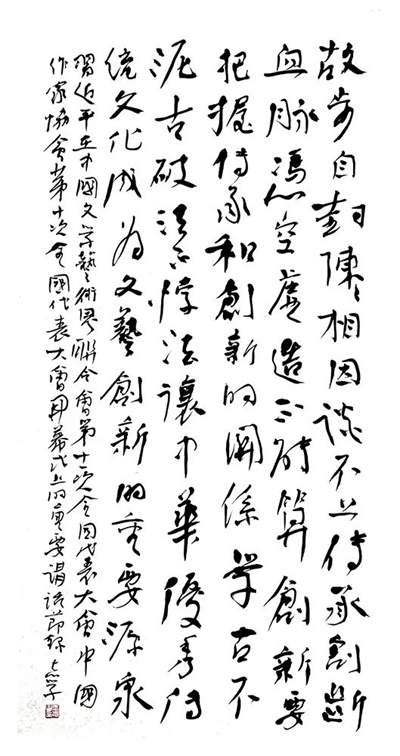 故步自封陳陳相因谈不上传承割斷
血脉馮空虚造不能算創新要
把握传承和創新的関係學古不
泥古破法不悖法讓中華優秀传
统文化成为文藝創新的重要源泉
習近平在中國文学藝術界聯合會第十一次全国代表大會中國
作家協會第十次全國代表大會開幕式上的重要講話節録